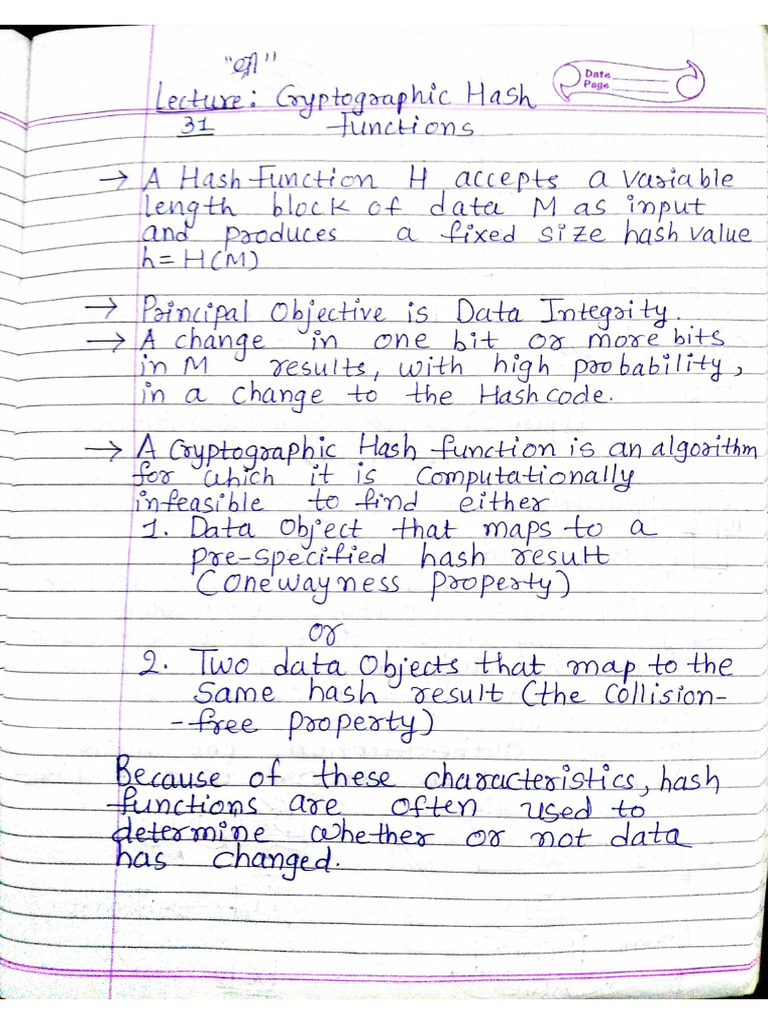 Date
Page
Lecture: Cryptographic Hash
31 functions
→ A Hash Function H accepts a variable
length block of data M as input
and produces a fixed size hash value
h = H(M)
→ Principal Objective is Data Integrity.
→ A change in one bit or more bits
in M results, with high probability,
in a change to the Hash code.
→ A Cryptographic Hash function is an algorithm
for which it is computationally
infeasible to find either
1. Data Object that maps to a
pre-specified hash result
(onewayness property)
or
2. Two data Objects that map to the
same hash result (the collision-
-free property)
Because of these characteristics, hash
functions are often used to
determine whether or not data
has changed.